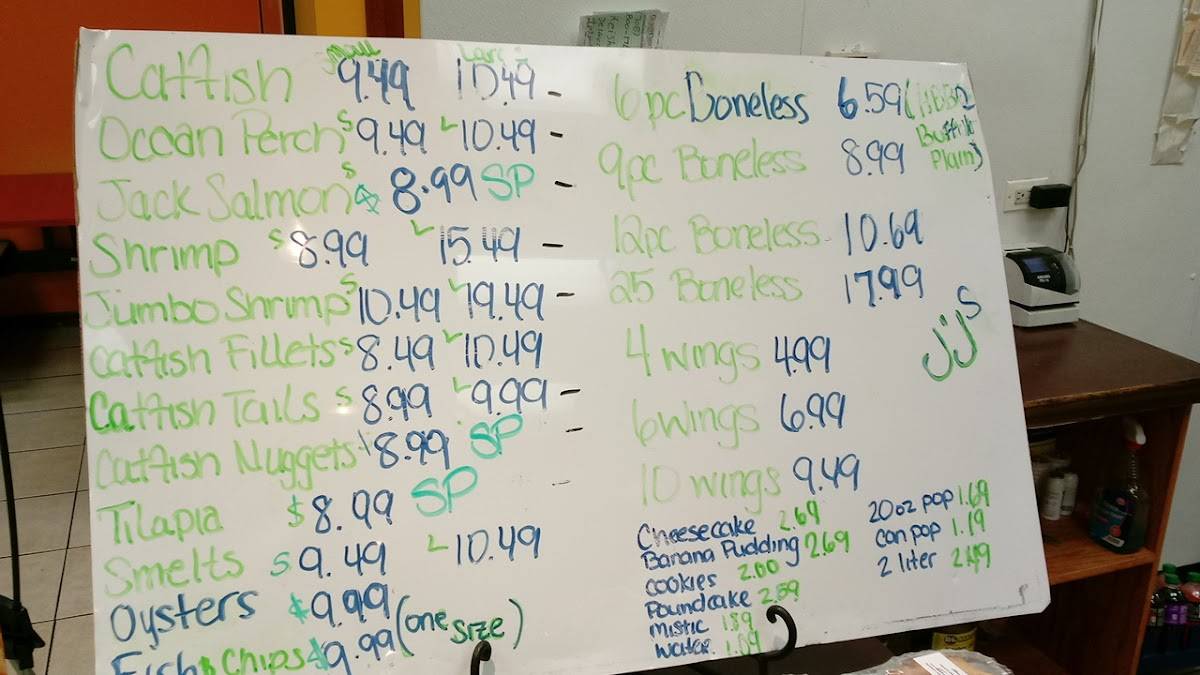 Small Large
Catfish 9.49 10.49 -
Ocean Perch S 9.49 L 10.49 -
Jack Salmon S 8.99 SP -
Shrimp S 8.99 L 15.49 -
Jumbo Shrimp S 10.49 L 19.49 -
Catfish Fillets S 8.49 L 10.49
Catfish Tails S 8.99 L 9.99 -
Catfish Nuggets 8.99 SP -
Tilapia $8.99 SP -
Smelts S 9.49 L 10.49
Oysters $9.99
Fish & Chips $9.99 (one size)
6pc Boneless 6.59
Plain)
9pc Boneless 8.99
12pc Boneless 10.69
25 Boneless 17.99
JJS
4 wings 4.99
6 wings 6.99
10 wings 9.49
Cheesecake 2.69
Banana Pudding 2.69
cookies 2.00
Poundcake 2.59
mistic 1.89
water. 1.09
20oz pop 1.69
can pop 1.19
2 liter